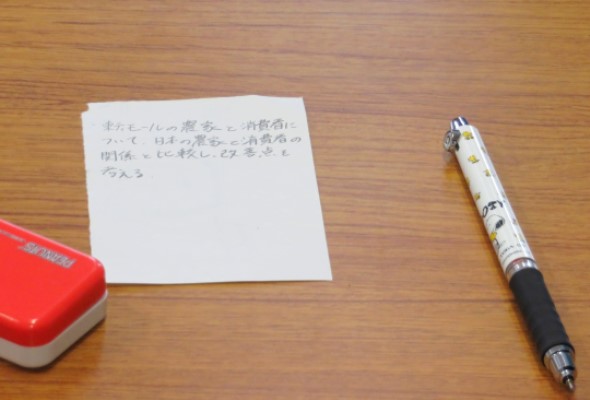 東チモールの農家と消費者に
ついて、日本の農家と消費者の
関係と比較し、改善点を
考える。